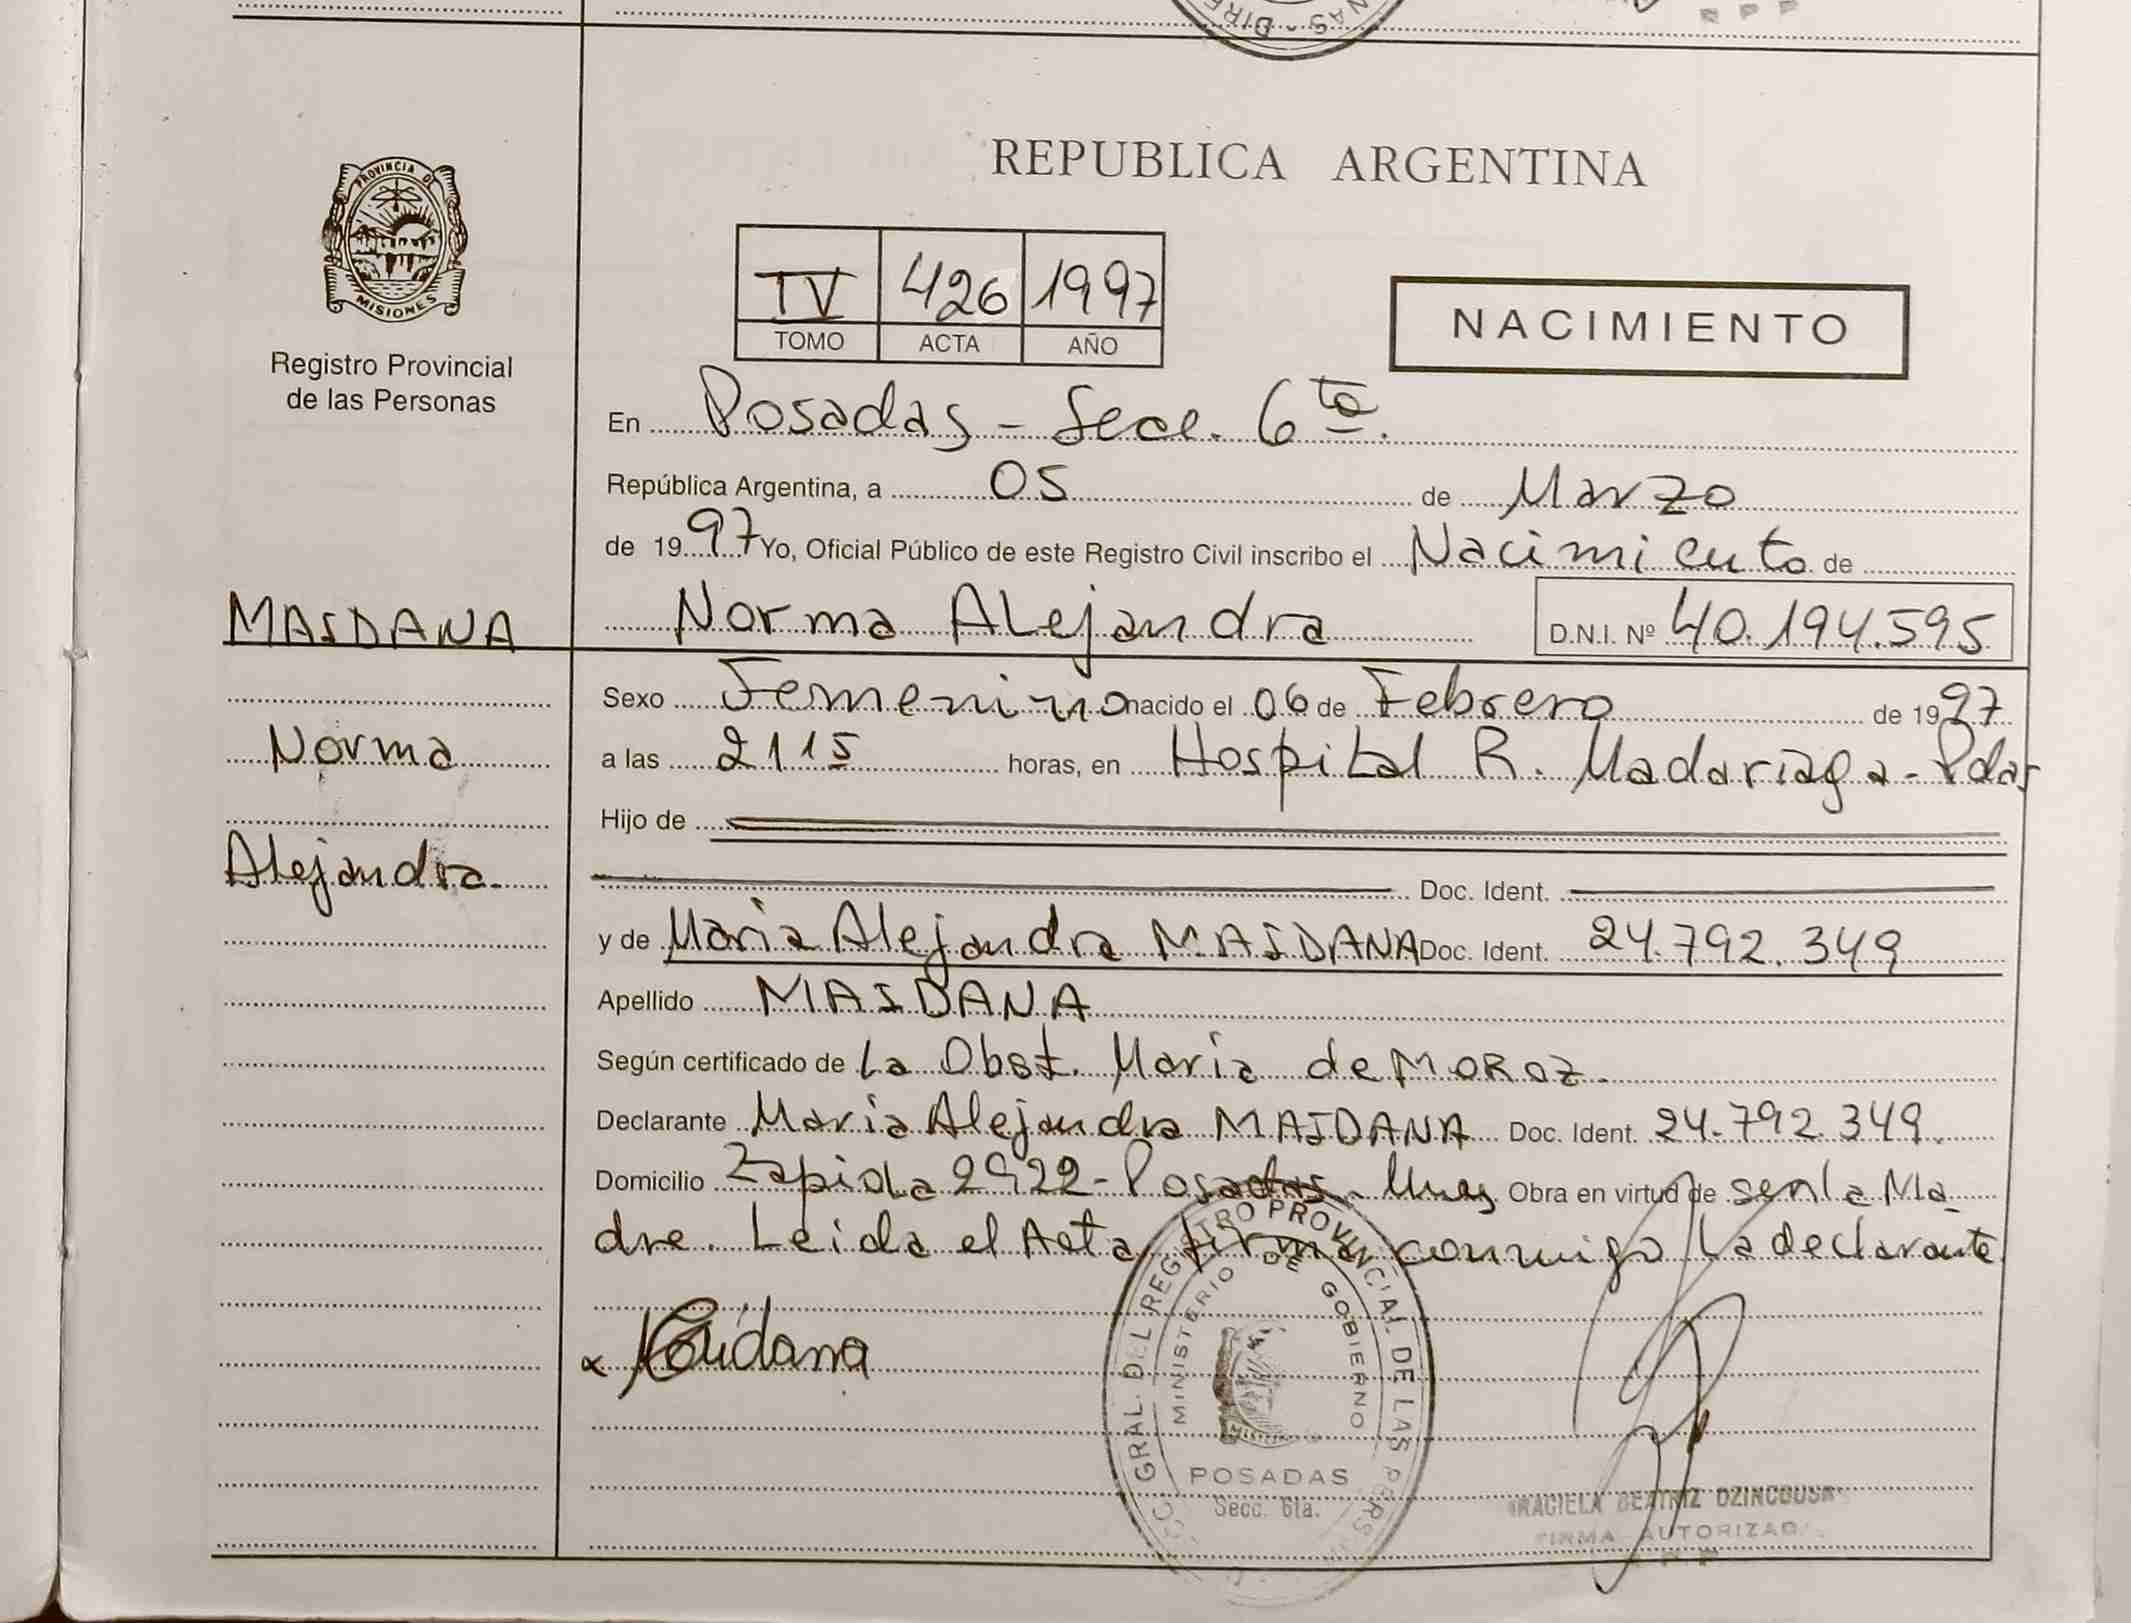 DIRE
NAS
R P P
PROVINCIA DE
MISIONES
Registro Provincial
de las Personas
REPUBLICA ARGENTINA
IV 426 1997
TOMO ACTA AÑO
NACIMIENTO
En Posadas - Secc. 6ta.
República Argentina, a 05 de Marzo
de 1997 Yo, Oficial Público de este Registro Civil inscribo el Nacimiento de
MAIDANA
Norma Alejandra D.N.I. Nº 40.194.595
Sexo Femenino nacido el 06 de Febrero de 1997
Norma
a las 2115 horas, en Hospital R. Madariaga - Pdas
Hijo de
Alejandra.
Doc. Ident.
y de Maria Alejandra MAIDANA Doc. Ident. 24.792.349
Apellido MAIDANA
Según certificado de La Obst. Maria de MOROZ.
Declarante Maria Alejandra MAIDANA Doc. Ident. 24.792.349.
Domicilio Zapiola 2922 - Posadas - Mnes Obra en virtud de ser la Ma
dre. Leida el Acta firma conmigo la declarante
x Maidana
GRAL. DEL REGISTRO PROVINCIAL DE LAS PERS
MINISTERIO DE GOBIERNO
POSADAS
Secc. 6ta.
GRACIELA BEATRIZ
FIRMA AUTORIZADA